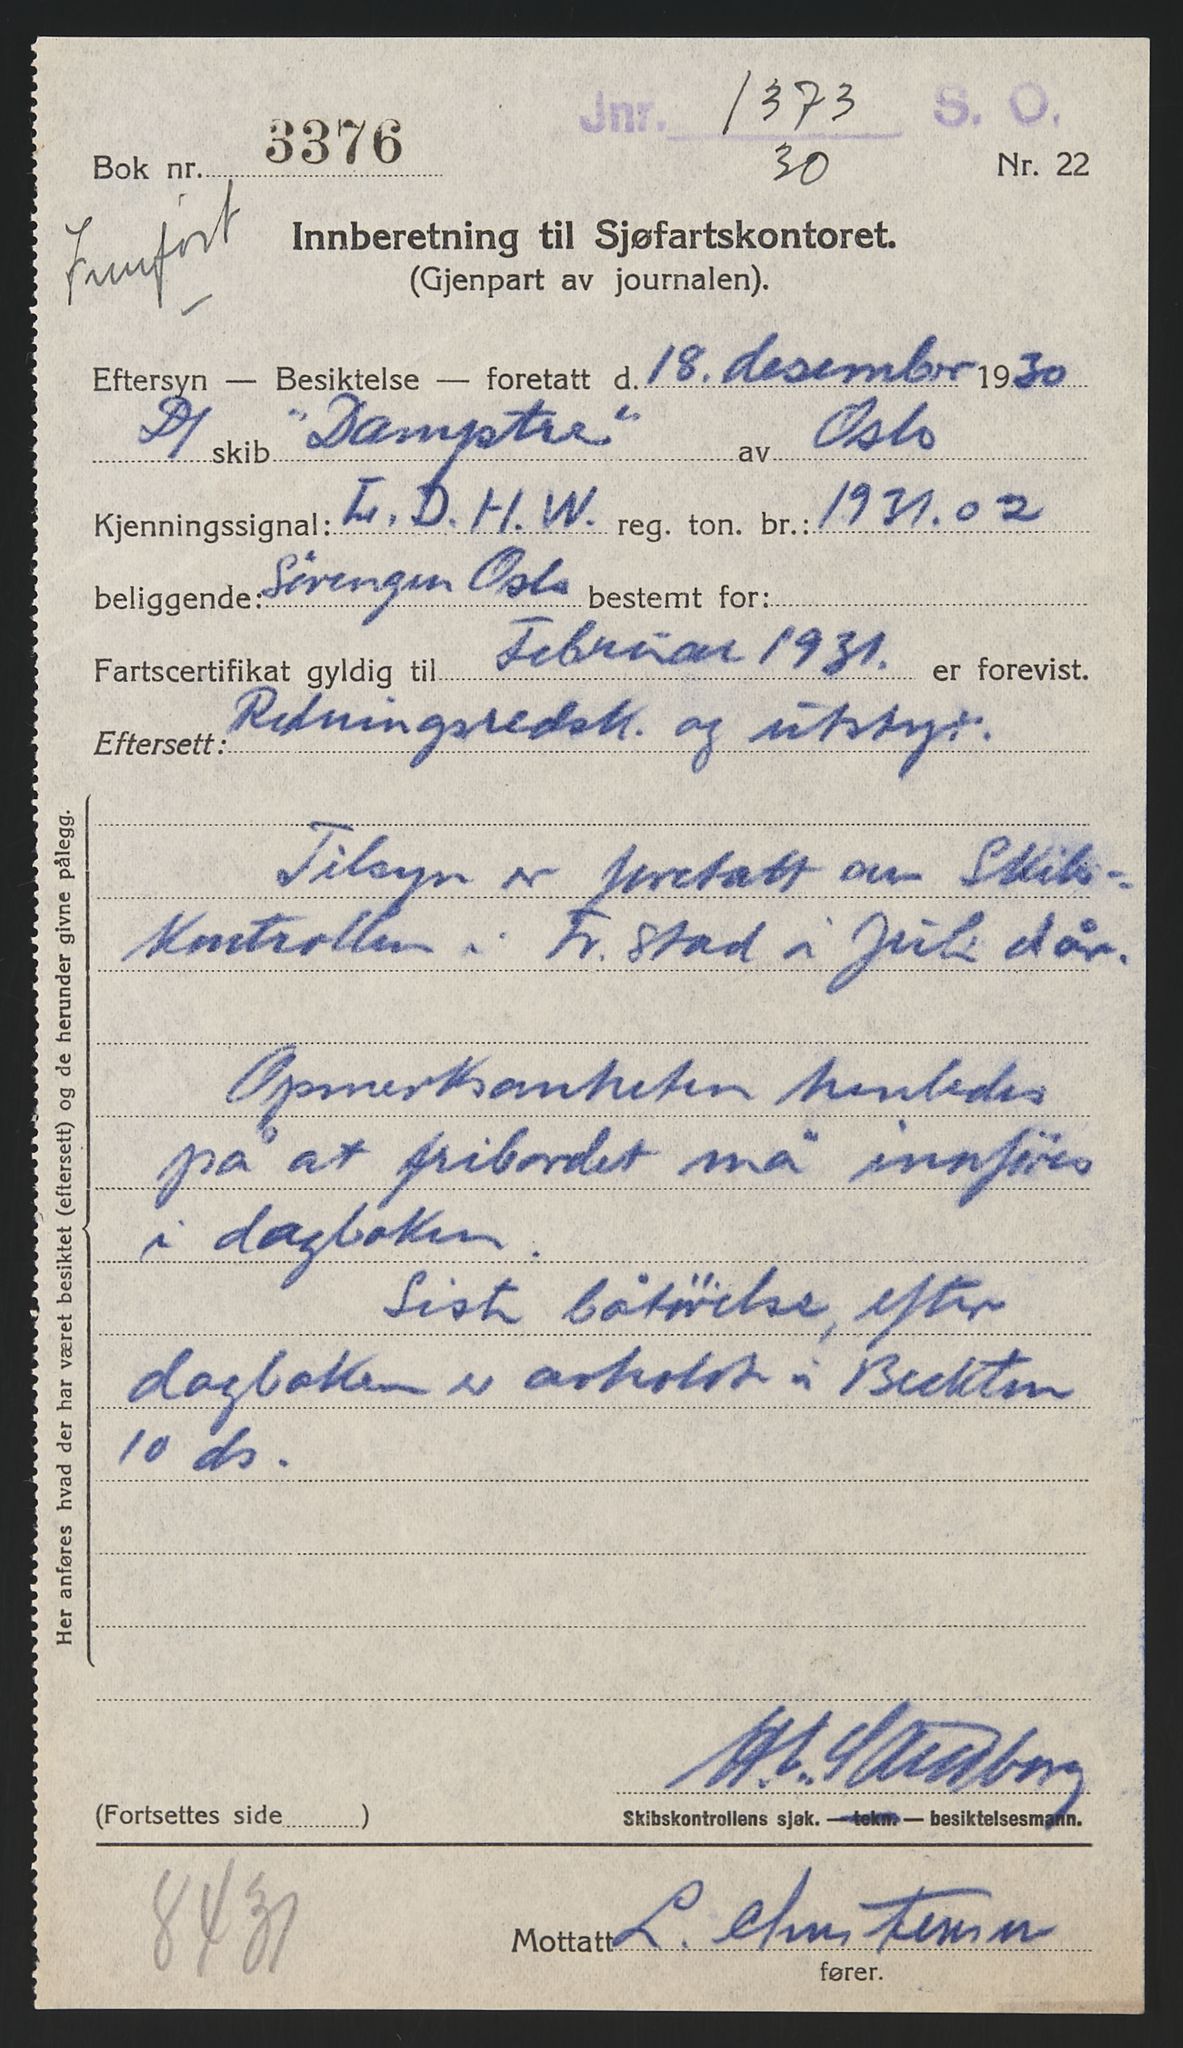 Jnr. 1373 S. O.
30
Bok nr. 3376 Nr. 22
Innført
Innberetning til Sjøfartskontoret.
(Gjenpart av journalen).
Eftersyn — Besiktelse — foretatt d. 18. desember 1930
D/ skib "Dampstre" av Oslo
Kjenningssignal: L. D. H. W. reg. ton. br.: 1931.02
beliggende: Sörengen Oslo bestemt for:
Fartscertifikat gyldig til Februar 1931. er forevist.
Eftersett: Redningsredsk. og utstyr.
Her anføres hvad der har været besiktet (eftersett) og de herunder givne pålegg.
Tilsyn er foretatt av Skibs-
kontrollen i Fr.stad i Juli d år.
Opmerksomheten henledes
på at fribordet må innföres
i dagboken.
Siste båtövelse, efter
dagboken er avholdt i Beckton
10 ds.
H. C. Sandborg
(Fortsettes side )
Skibskontrollens sjøk. — tekn. — besiktelsesmann.
8431
Mottatt L. Christensen
fører.